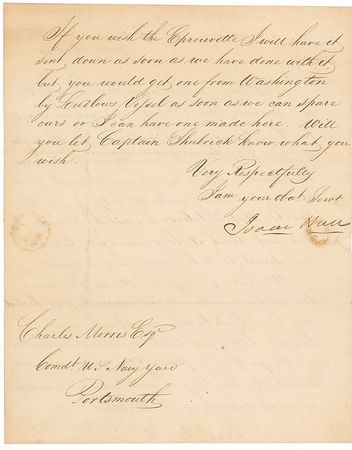 If you wish the Eprouvette I will have it
sent down as soon as we have done with it
but you would get one from Washington
by Vessel as soon as we can spare
ours or I can have one made here. Will
you let Captain Shubrick know what you
wish.
Very Respectfully
I am your obt Servt
Isaac Hull
Charles Morris Esqr
Comdt US Navy Yard
Portsmouth